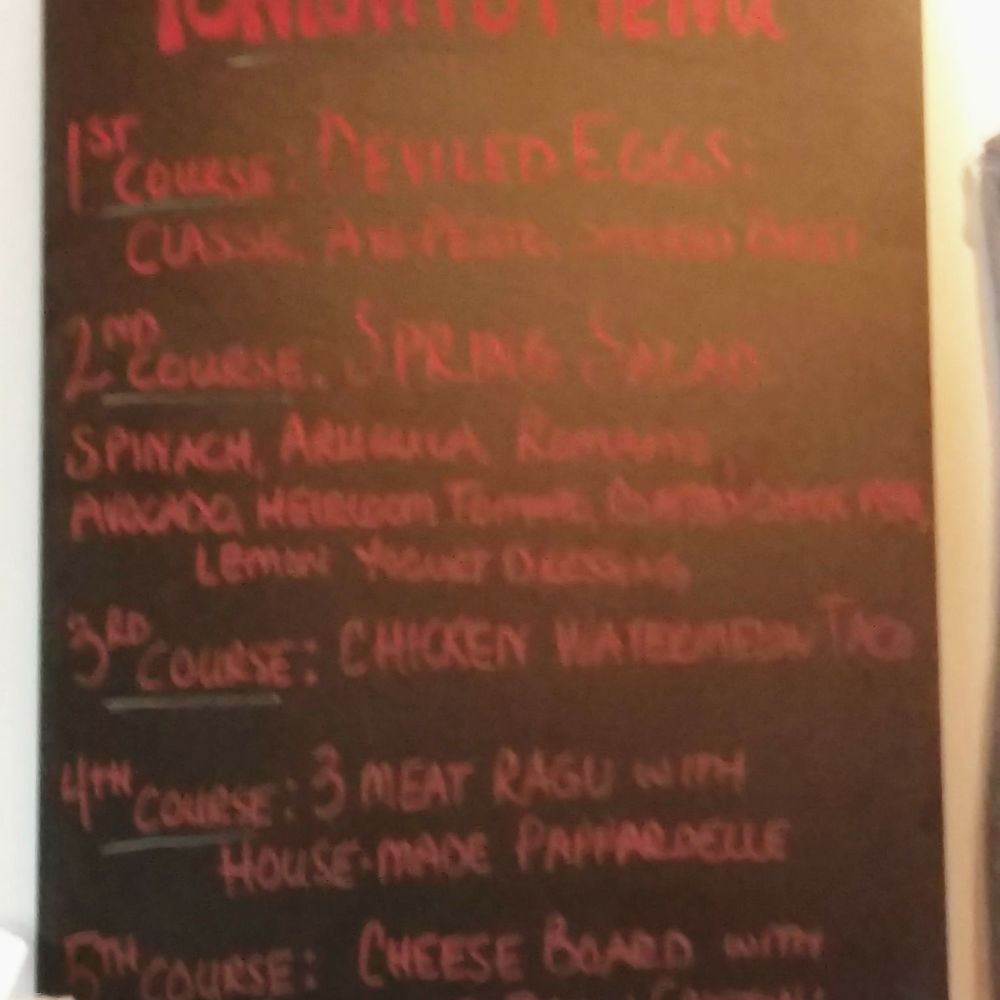 TONIGHT'S MENU
1ST COURSE: DEVILED EGGS:
CLASSIC,
2ND COURSE: SPRING SALAD
SPINACH, ARUGULA, ROMAINE,
AVOCADO, HEIRLOOM TOMATO,
LEMON YOGURT DRESSING
3RD COURSE: CHICKEN WATERMELON TACO
4TH COURSE: 3 MEAT RAGU WITH
HOUSE-MADE PAPPARDELLE
5TH COURSE: CHEESE BOARD WITH